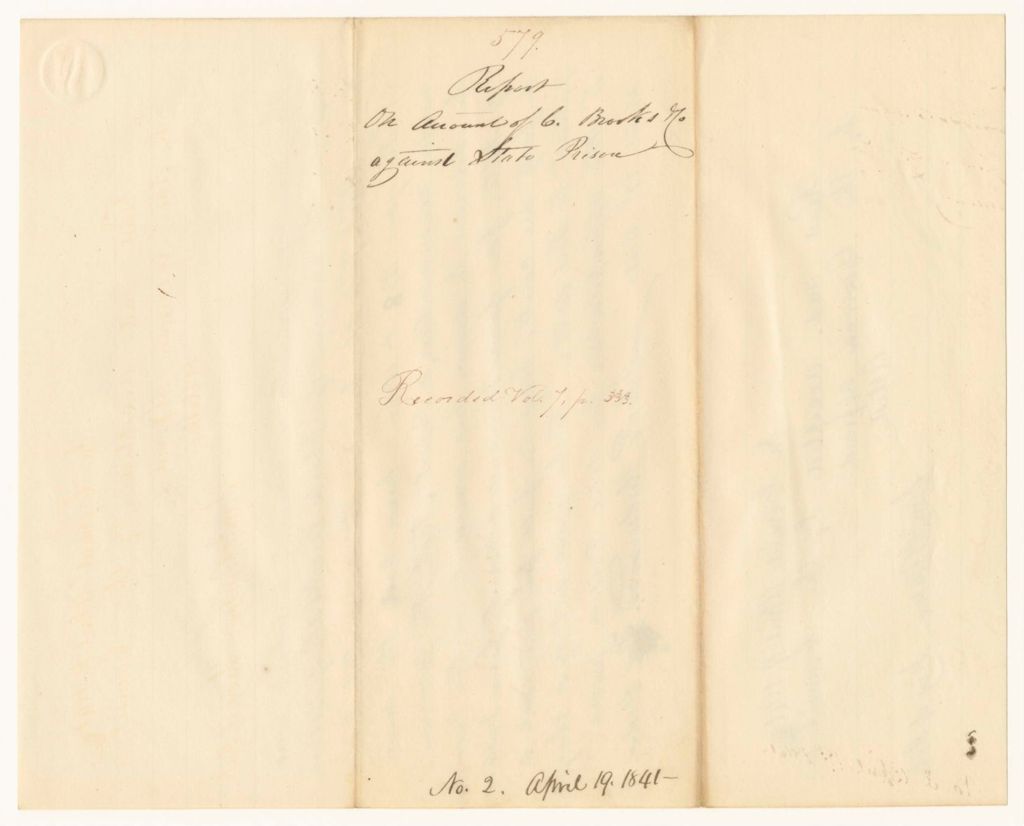 579.
Report
On Account of C. Brooks & Co
against State Prison
Recorded Vol. 7, p. 333.
No. 2. April 19. 1841-